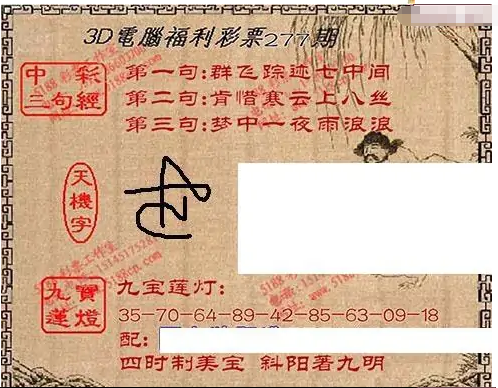 3D電腦福利彩票277期
中彩
三句經
第一句:群飞踪迹七中间
第二句:肯惜寒云上八丝
第三句:梦中一夜雨浪浪
天機字
九寶
蓮燈
九宝莲灯:
35-70-64-89-42-85-63-09-18
配:
四时制美宝 斜阳著九明